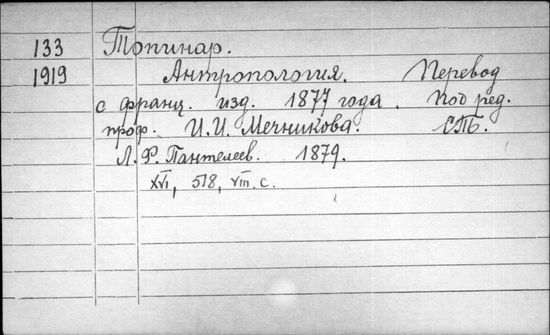 133 Топинар.
1919 Антропология. Перевод
с франц. изд. 1877 года. Под ред.
проф. И.И. Мечникова. СПБ.
Л. Ф. Пантелеев. 1879.
XVI, 518, VIII. с.